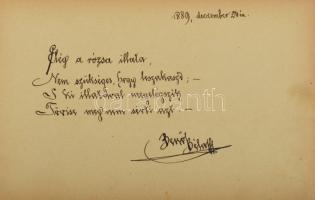 1889, december 24én.
Elég a rózsa illata,
Nem szükséges, hogy leszakaszd; –
S ki illatával megelégszik
Tövise meg nem sérti azt. –
Benő